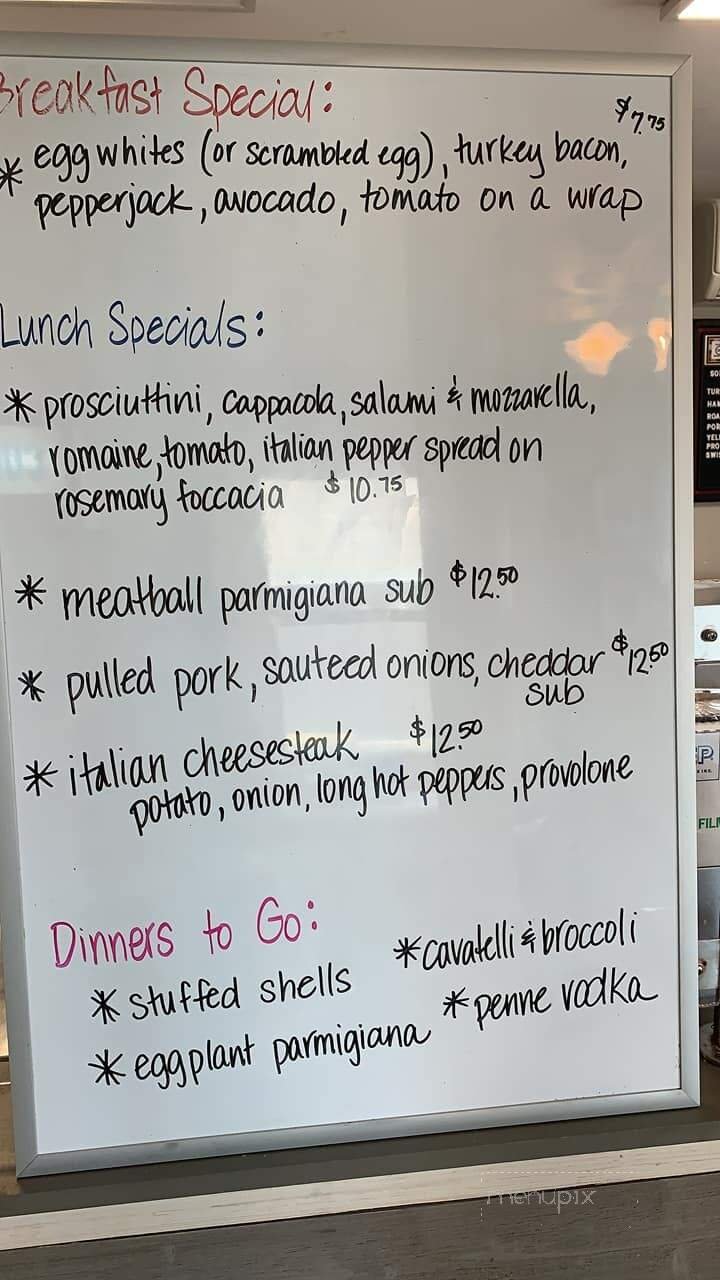 Breakfast Special:
$7.75
* egg whites (or scrambled egg), turkey bacon,
pepperjack, avocado, tomato on a wrap
Lunch Specials:
* prosciuttini, cappacola, salami & mozzarella,
romaine, tomato, italian pepper spread on
rosemary foccacia $10.75
* meatball parmigiana sub $12.50
* pulled pork, sauteed onions, cheddar $12.50
sub
* italian cheesesteak $12.50
potato, onion, long hot peppers, provolone
Dinners to Go:
* stuffed shells
* cavatelli & broccoli
* eggplant parmigiana
* penne vodka
menupix